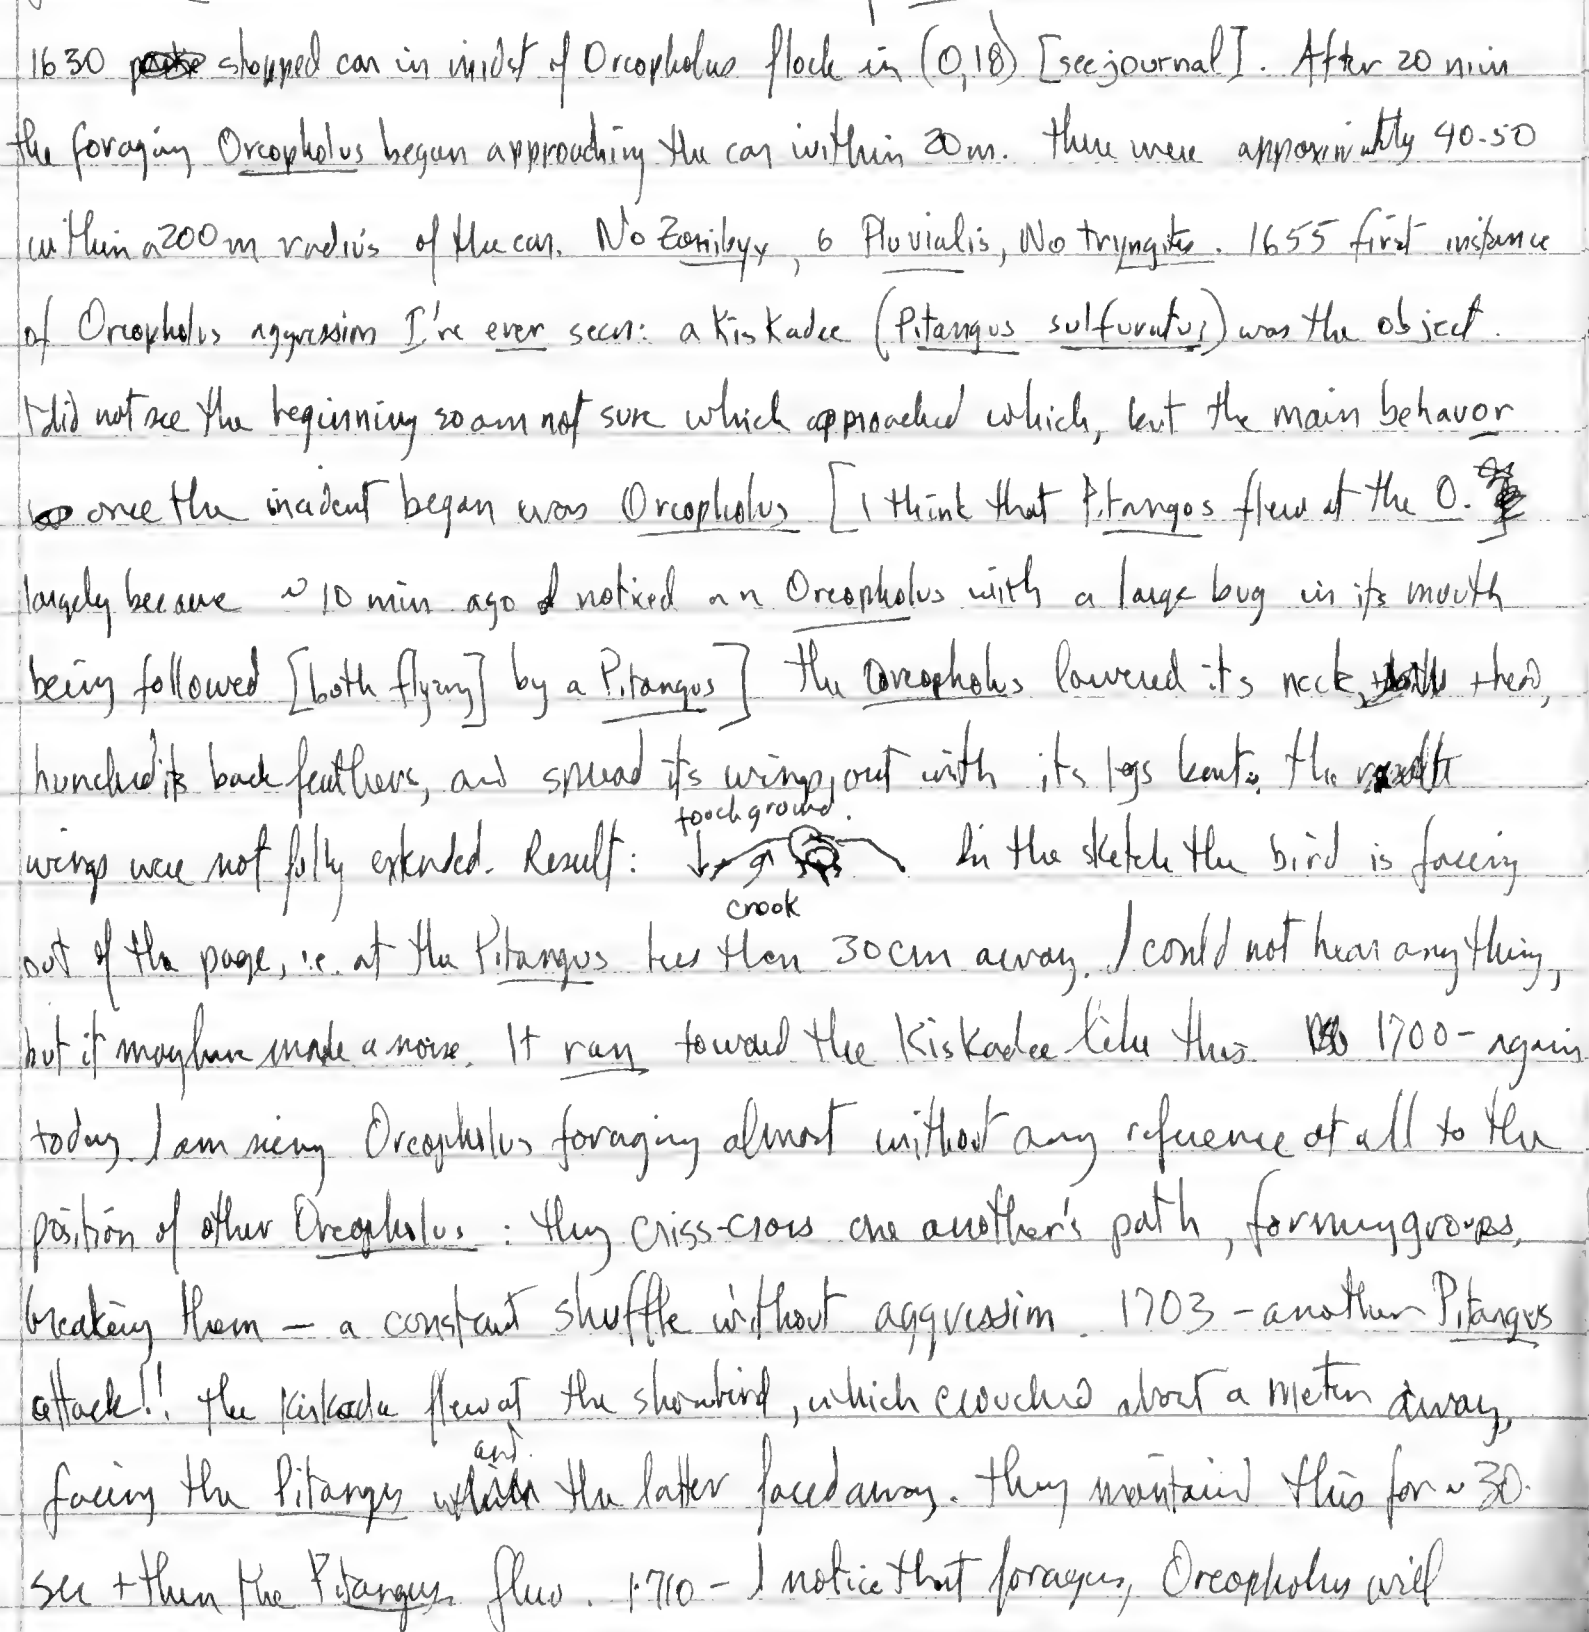 1630 stopped car in midst of Oreopholus flock in (0,18) [see journal]. After 20 min
the foraging Oreopholus began approaching the car within 20m. There were approximately 40-50
within a 200m radius of the car. No Zonibyx, 6 Pluvialis, No Tryngites. 1655 first instance
of Oreopholus aggression I've ever seen: a Kiskadee (Pitangus sulfuratus) was the object.
I did not see the beginning so am not sure which approached which, but the main behavor
once the incident began was Oreopholus [I think that Pitangos flew at the O.
largely because ~10 min ago I noticed an Oreopholus with a large bug in its mouth
being followed [both flying] by a Pitangus] The Oreopholus lowered its neck, + head,
hunched its back feathers, and spread its wings out with its legs bent. The
touch ground.
wings were not fully extended. Result: In the sketch the bird is facing
crook
out of the page, i.e. at the Pitangus less than 30cm away. I could not hear anything,
but it may have made a noise. It ran toward the Kiskadee like this. 1700 - again
today I am seeing Oreopholus foraging almost without any reference at all to the
position of other Oreopholus : they criss-cross one another's path, forming groups,
breaking them — a constant shuffle without aggression. 1703 - another Pitangus
attack!! The Kiskadee flew at the shorebird, which crouched about a meter away,
facing the Pitangus and the latter faced away. They maintaind this for ~30
sec + then the Pitangus flew. 1710 - I notice that foragers, Oreopholus will